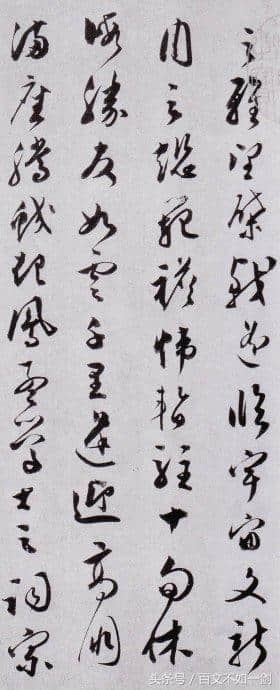 之雅望棨戟遙臨宇宙文新
州之懿範襜帷暫駐十旬休
暇勝友如雲千里逢迎高朋
滿座騰蛟起鳳孟學士之詞宗
头条号/百文不如一剑